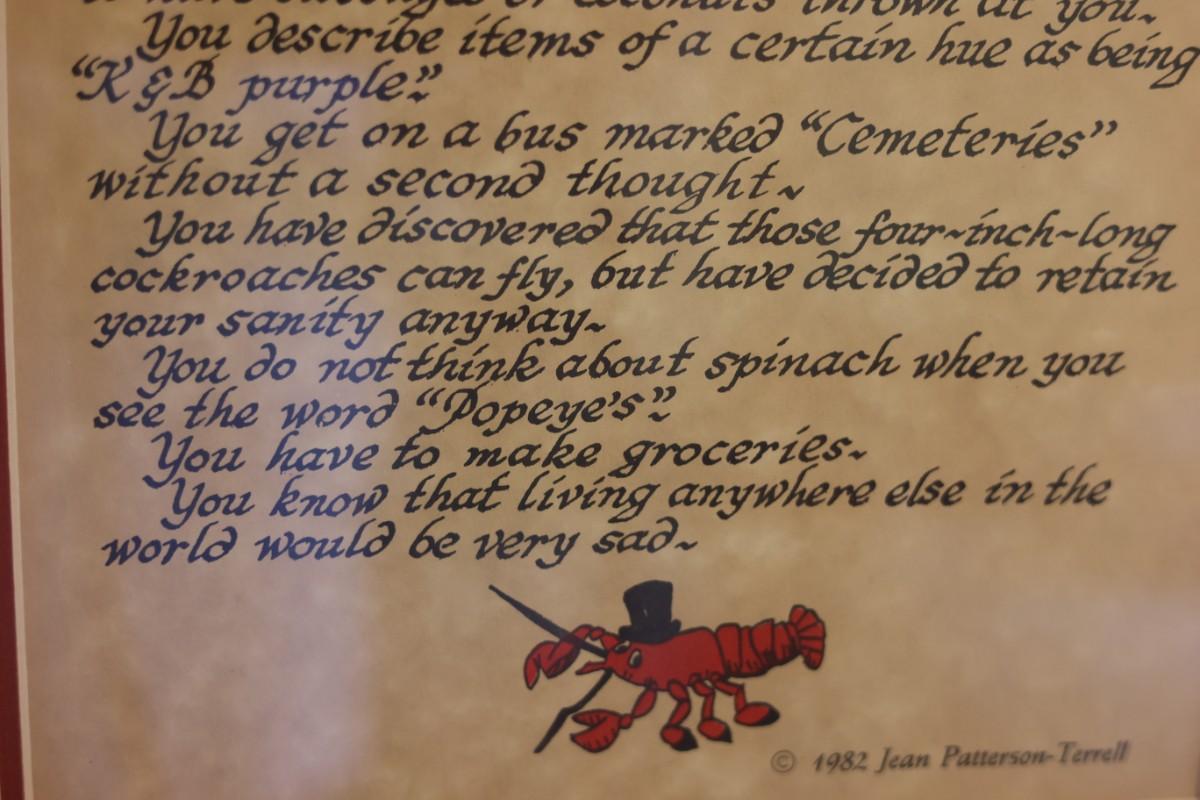 to have cabbages or coconuts thrown at you~
You describe items of a certain hue as being
“K&B purple”~
You get on a bus marked “Cemeteries”
without a second thought~
You have discovered that those four~inch~long
cockroaches can fly, but have decided to retain
your sanity anyway~
You do not think about spinach when you
see the word “Popeye's”~
You have to make groceries~
You know that living anywhere else in the
world would be very sad~
© 1982 Jean Patterson-Terrell